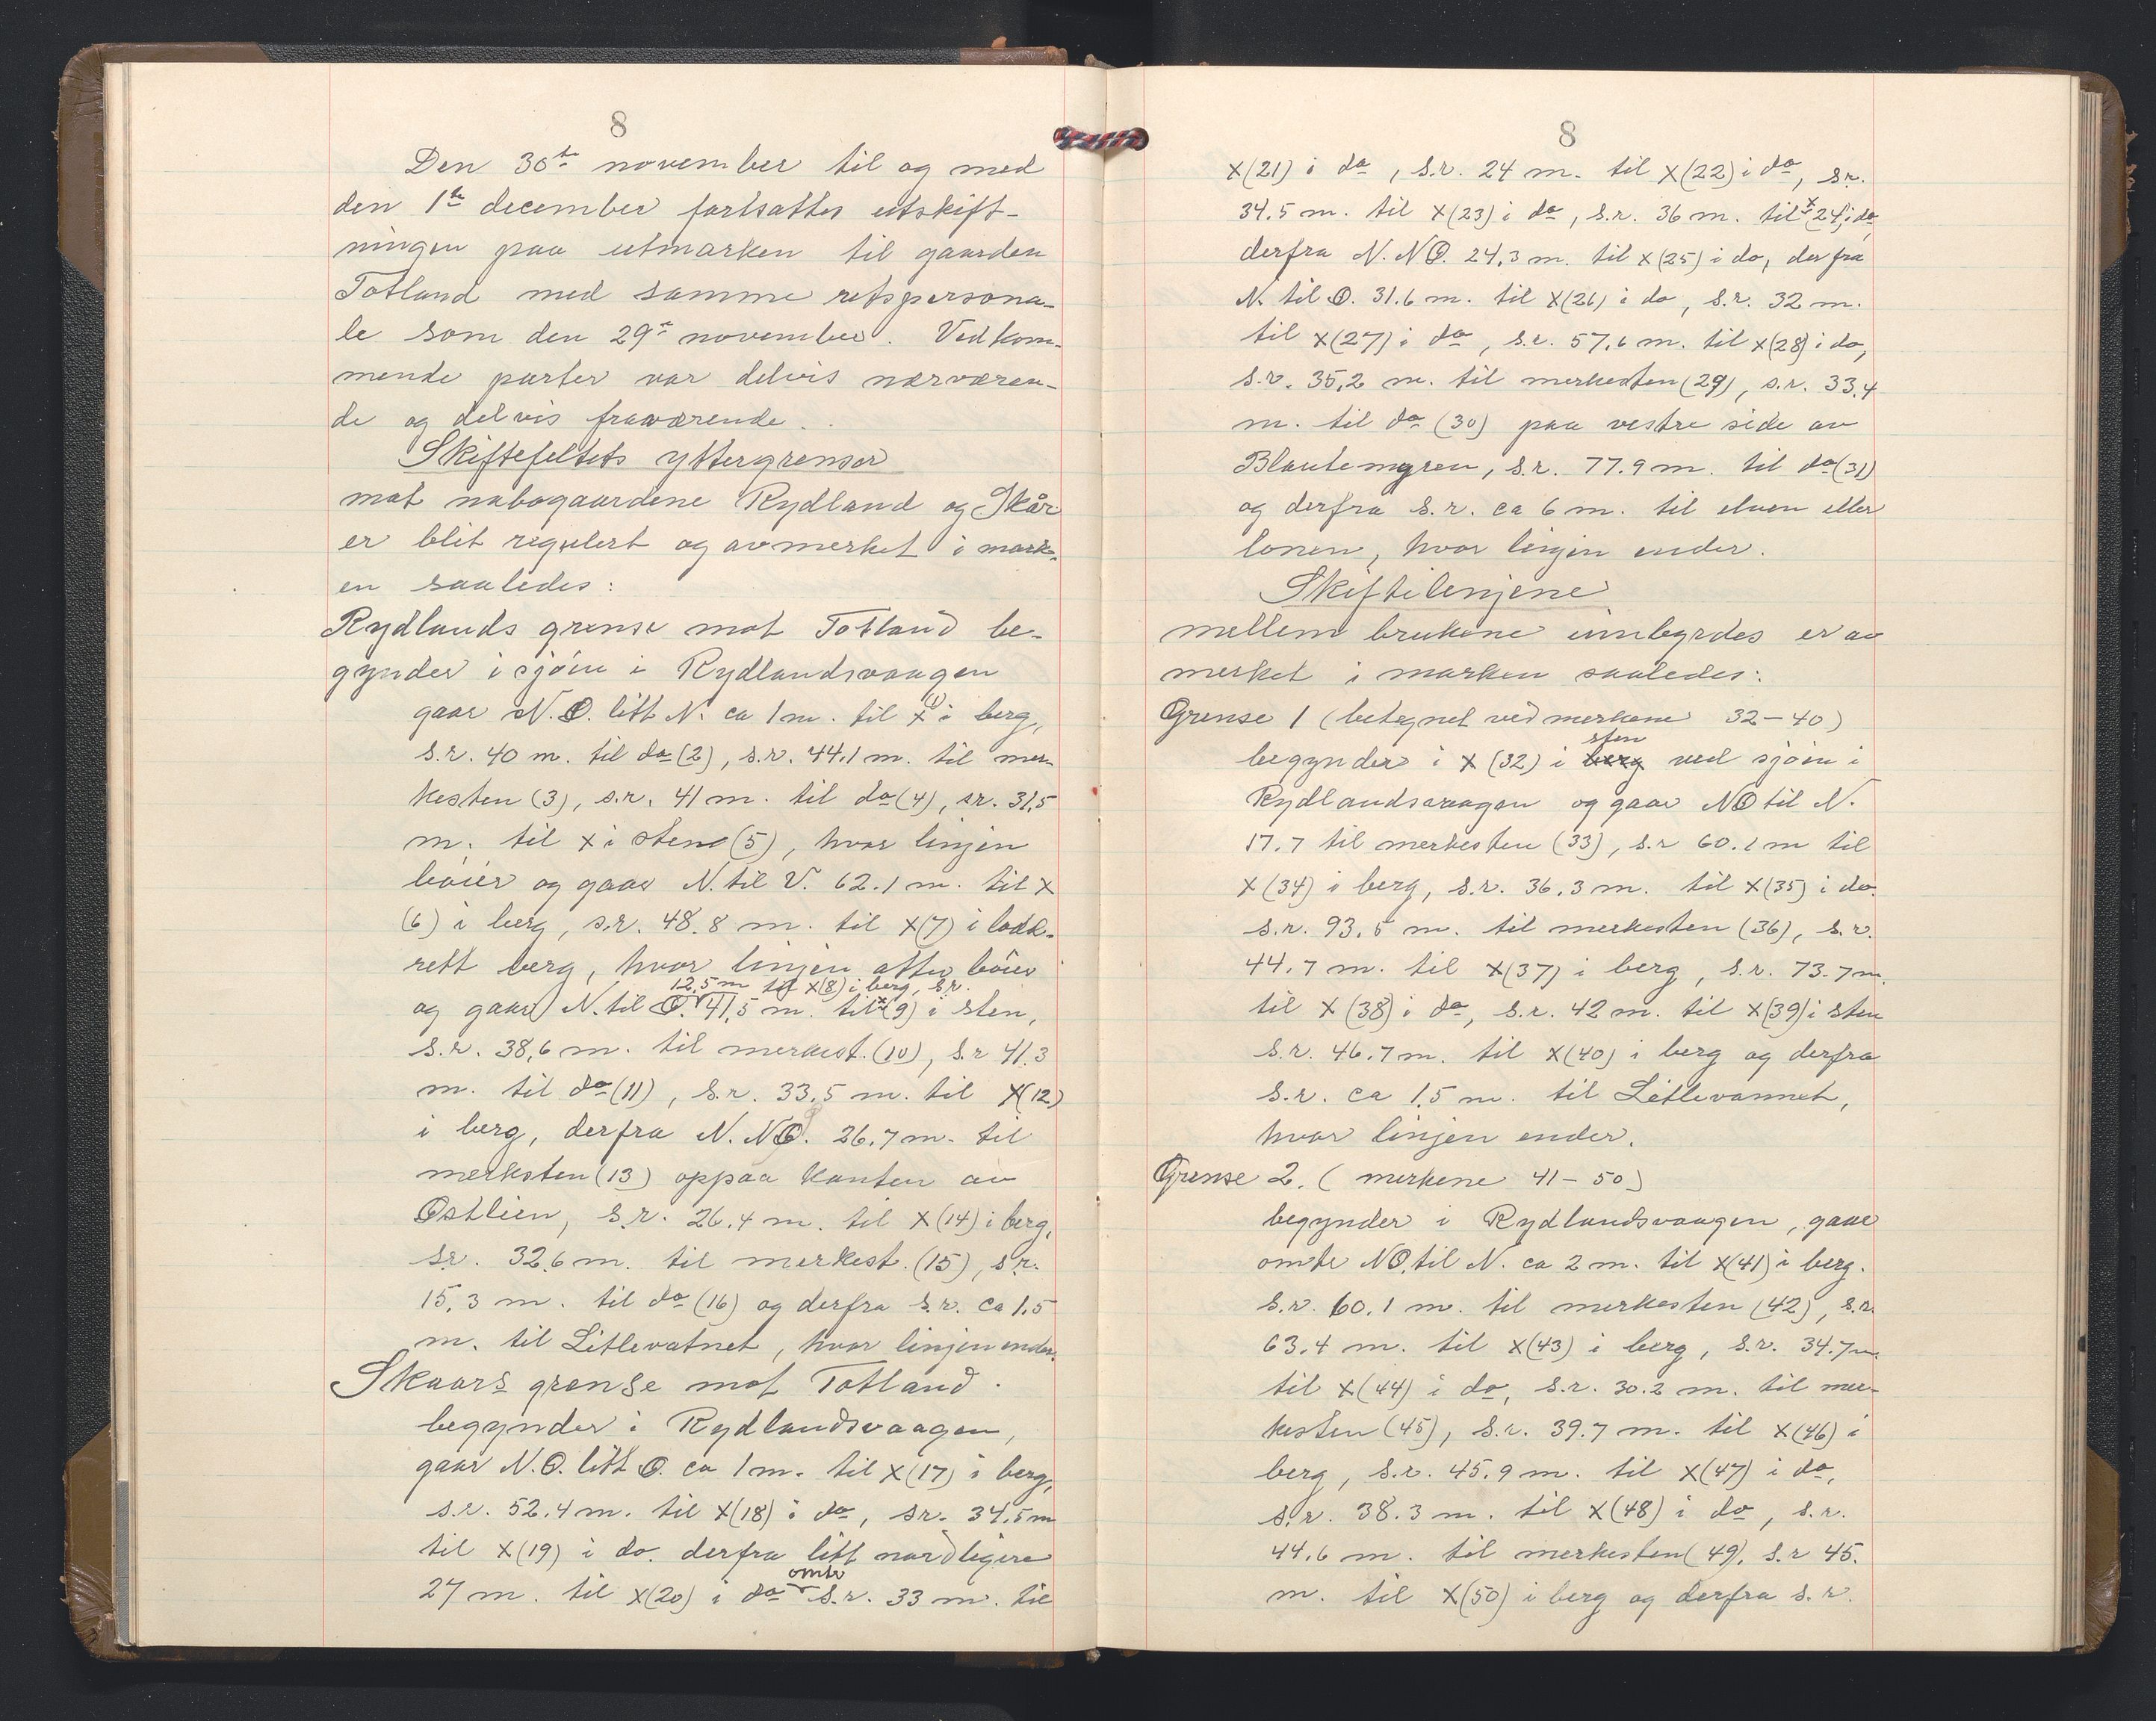 8
Den 30te november til og med
den 1te december fortsattes utskift-
ningen paa utmarken til gaarden
Totland med samme retspersona-
le som den 29de november. Vedkom-
mende parter var delvis nærværen-
de og delvis fraværende.
Skiftefeltets yttergrenser
mot nabogaardene Rydland og Skår
er blit regulert og avmerket i mark-
en saaledes:
Rydlands grense mot Totland be-
gynder i sjøen i Rydlandsvaagen
gaar N.Ø. litt N. ca 1 m. til x (1) i berg,
s.r. 40 m. til do (2), s.r. 44.1 m. til mer-
kesten (3), s.r. 41 m. til do (4), s.r. 31,5
m. til x i sten (5), hvor linjen
bøier og gaar N. til V. 62.1 m. til x
(6) i berg, s.r. 48.8 m. til x(7) i lodd-
rett berg, hvor linjen atter bøier
12,5 m til x(8) i berg, s.r.
og gaar N. til Ø. 41,5 m. til x(9) i sten,
s.r. 38,6 m. til merkest. (10), s.r 41.3
m. til do (11), s.r. 33,5 m. til x(12)
i berg, derfra N. NØ. 26.7 m. til
merksten (13) oppaa kanten av
Østlien, s.r. 26.4 m. til x (14) i berg,
s.r. 32,6 m. til merkest. (15), s.r.
15,3 m. til do (16) og derfra s.r. ca 1.5
m. til Litlevatnet, hvor linjen ender.
Skaars grense mot Totland.
begynder i Rydlandsvaagen,
gaar N.Ø. litt Ø. ca 1 m. til x(17) i berg,
s.r. 52.4 m. til x(18) i do, s.r. 34.5 m
til x(19) i do. derfra litt nordligere
27 m. til x(20) i do omtr s.r. 33 m. til
8
x(21) i do, s.r. 24 m. til x(22) i do, s.r.
34.5 m. til x(23) i do, s.r. 36 m. til x (24) i do
derfra N. NØ. 24,3 m. til x(25) i do, derfra
N. til Ø. 31.6 m. til x(26) i do, s.r. 32 m.
til x(27) i do, s.r. 57.6 m. til x(28) i do,
s.r. 35,2 m. til merkesten (29), s.r. 33.4
m. til do (30) paa vestre side av
Blautemyren, s.r. 77.9 m. til do (31)
og derfra s.r. ca 6 m. til elven eller
lonen, hvor linjen ender.
Skiftelinjene
mellem brukene innbyrdes er av
merket i marken saaledes:
Grense 1 (betegnet ved merkene 32-40)
begynder i x (32) i berg sten ved sjøen i
Rydlandsvaagen og gaar NØ til N.
17.7 til merkesten (33), s.r 60.1 m til
x(34) i berg, s.r. 36.3 m. til x(35) i do.
s.r. 93.5 m. til merkesten (36), s.r.
44.7 m. til x(37) i berg, s.r. 73.7 m.
til x (38) i do, s.r. 42 m. til x(39) i sten
s.r. 46.7 m. til x(40) i berg og derfra
s.r. ca 1,5 m. til Litlevannet,
hvor linjen ender.
Grense 2. (merkene 41-50)
begynder i Rydlandsvaagen, gaar
omtr NØ. til N. ca 2 m. til x(41) i berg.
s.r. 60.1 m. til merkesten (42), s.r.
63.4 m. til x(43) i berg, s.r. 34.7 m.
til x(44) i do, s.r. 30.2 m. til mer-
kesten (45), s.r. 39.7 m. til x(46) i
berg, s.r. 45.9 m. til x(47) i do,
s.r. 38.3 m. til x(48) i do, s.r.
44.6 m. til merkesten (49), s.r 45.
m. til x(50) i berg og derfra s.r.